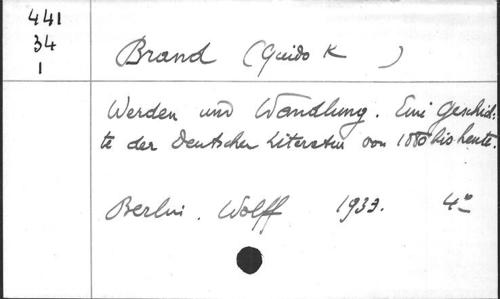 441
34
1
Brand (Guido K )
Werden und Wandlung. Eine Geschich-
te der Deutschen Literatur von 1880 bis heute.
Berlin. Wolff 1933. 4°